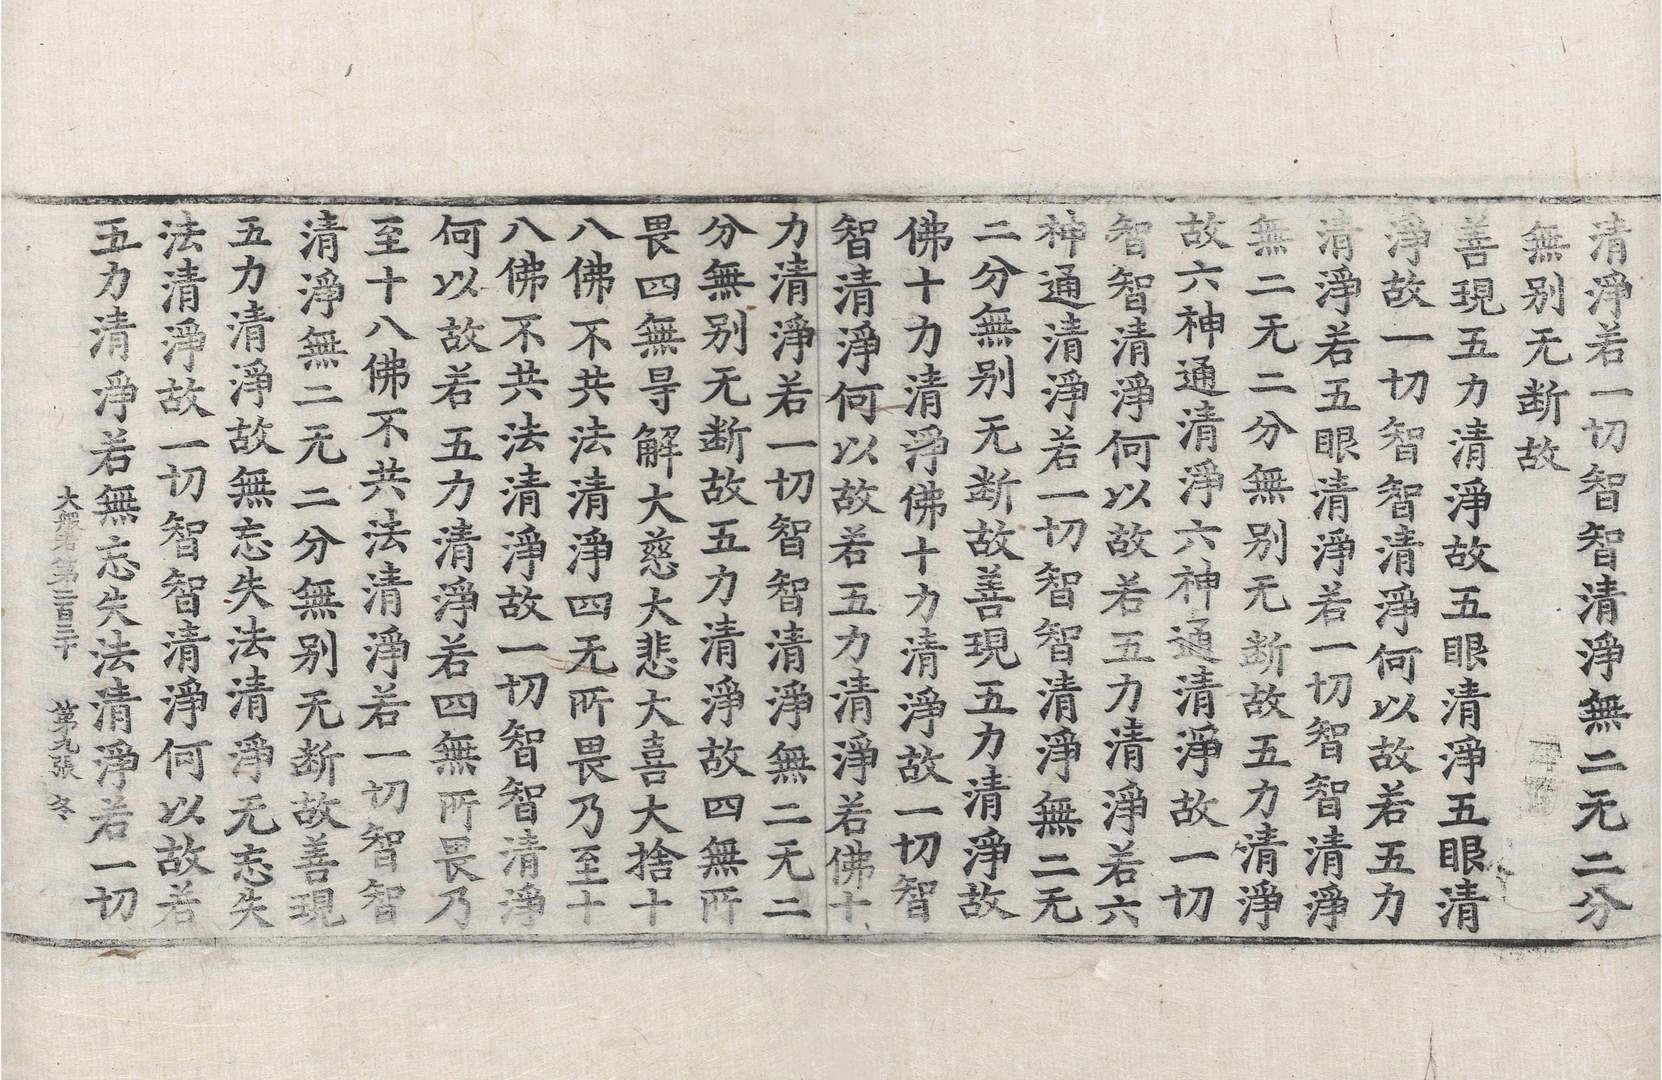 清淨若一切智智清淨無二无二分
無别无断故
善現五力清淨故五眼清淨五眼清
淨故一切智智清淨何以故若五力
清淨若五眼清淨若一切智智清淨
無二无二分無别无断故五力清淨
故六神通清淨六神通清淨故一切
智智清淨何以故若五力清淨若六
神通清淨若一切智智清淨無二无
二分無别无断故善現五力清淨故
佛十力清淨佛十力清淨故一切智
智清淨何以故若五力清淨若佛十
力清淨若一切智智清淨無二无二
分無别无断故五力清淨故四無所
畏四無导解大慈大悲大喜大捨十
八佛不共法清淨四无所畏乃至十
八佛不共法清淨故一切智智清淨
何以故若五力清淨若四無所畏乃
至十八佛不共法清淨若一切智智
清淨無二无二分無别无断故善現
五力清淨故無忘失法清淨无忘失
法清淨故一切智智清淨何以故若
五力清淨若無忘失法清淨若一切
大般若第二百二十 第九張 冬